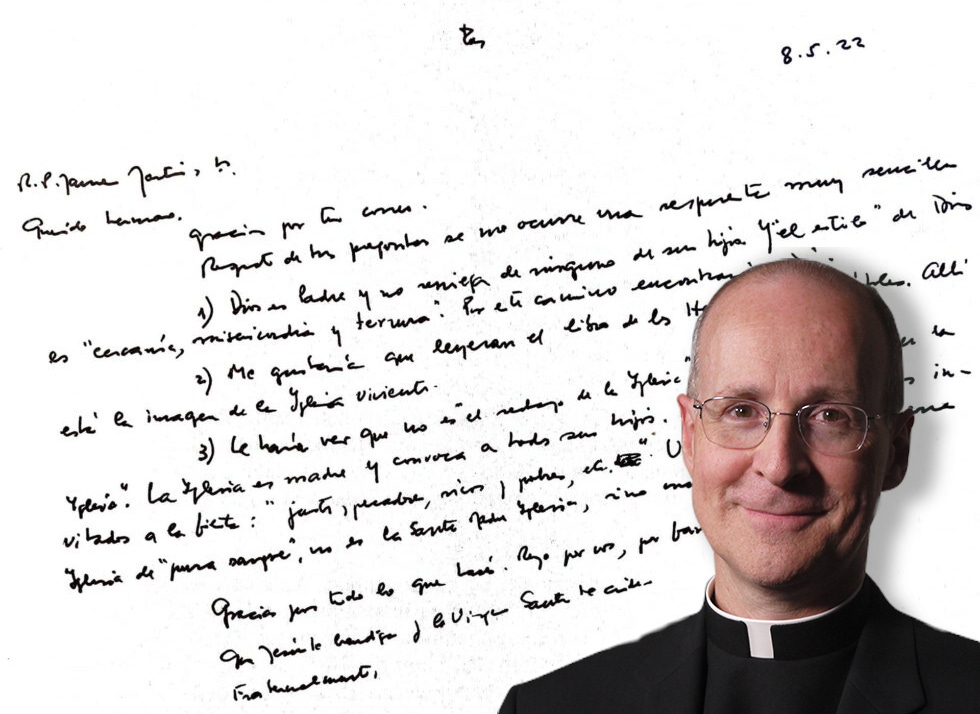 8.5.22
Querido hermano.
Gracias por tu correo.
Respecto de tus preguntas se me ocurre una respuesta muy sencilla
1) Dios es Padre y no reniega de ninguno de sus hijos. Y "el estilo" de Dios
es "cercanía, misericordia y ternura". Por este camino encontrará
2) Me gustaría que leyeran el libro de los Allí
está la imagen de la Iglesia viviente.
3) Le haría ver que no es "el rechazo de la Iglesia" la
Iglesia". La Iglesia es madre y convoca a todos sus hijos. in-
vitados a la fiesta: "justos, pecadores, ricos y pobres, etc." que
Iglesia de "pura sangre", no es la Santa Madre Iglesia, sino una
Gracias por todo lo que hacé. Rezo por vos, por favor
Que Jesús te bendiga y la Virgen Santa te cuide
Fraternalmente,